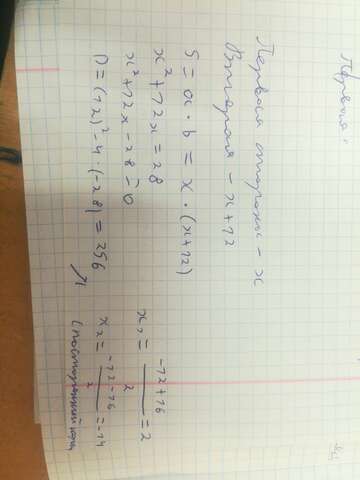 Первая:
Первая сторона - x
Вторая - x+12
S = a · b = x · (x+12)
x² + 12x = 28
x² + 12x - 28 = 0
D = (12)² - 4 · (-28) = 256
x₁ = (-12+16)/2 = 2
x₂ = (-12-16)/2 = -14
(посторонний кор